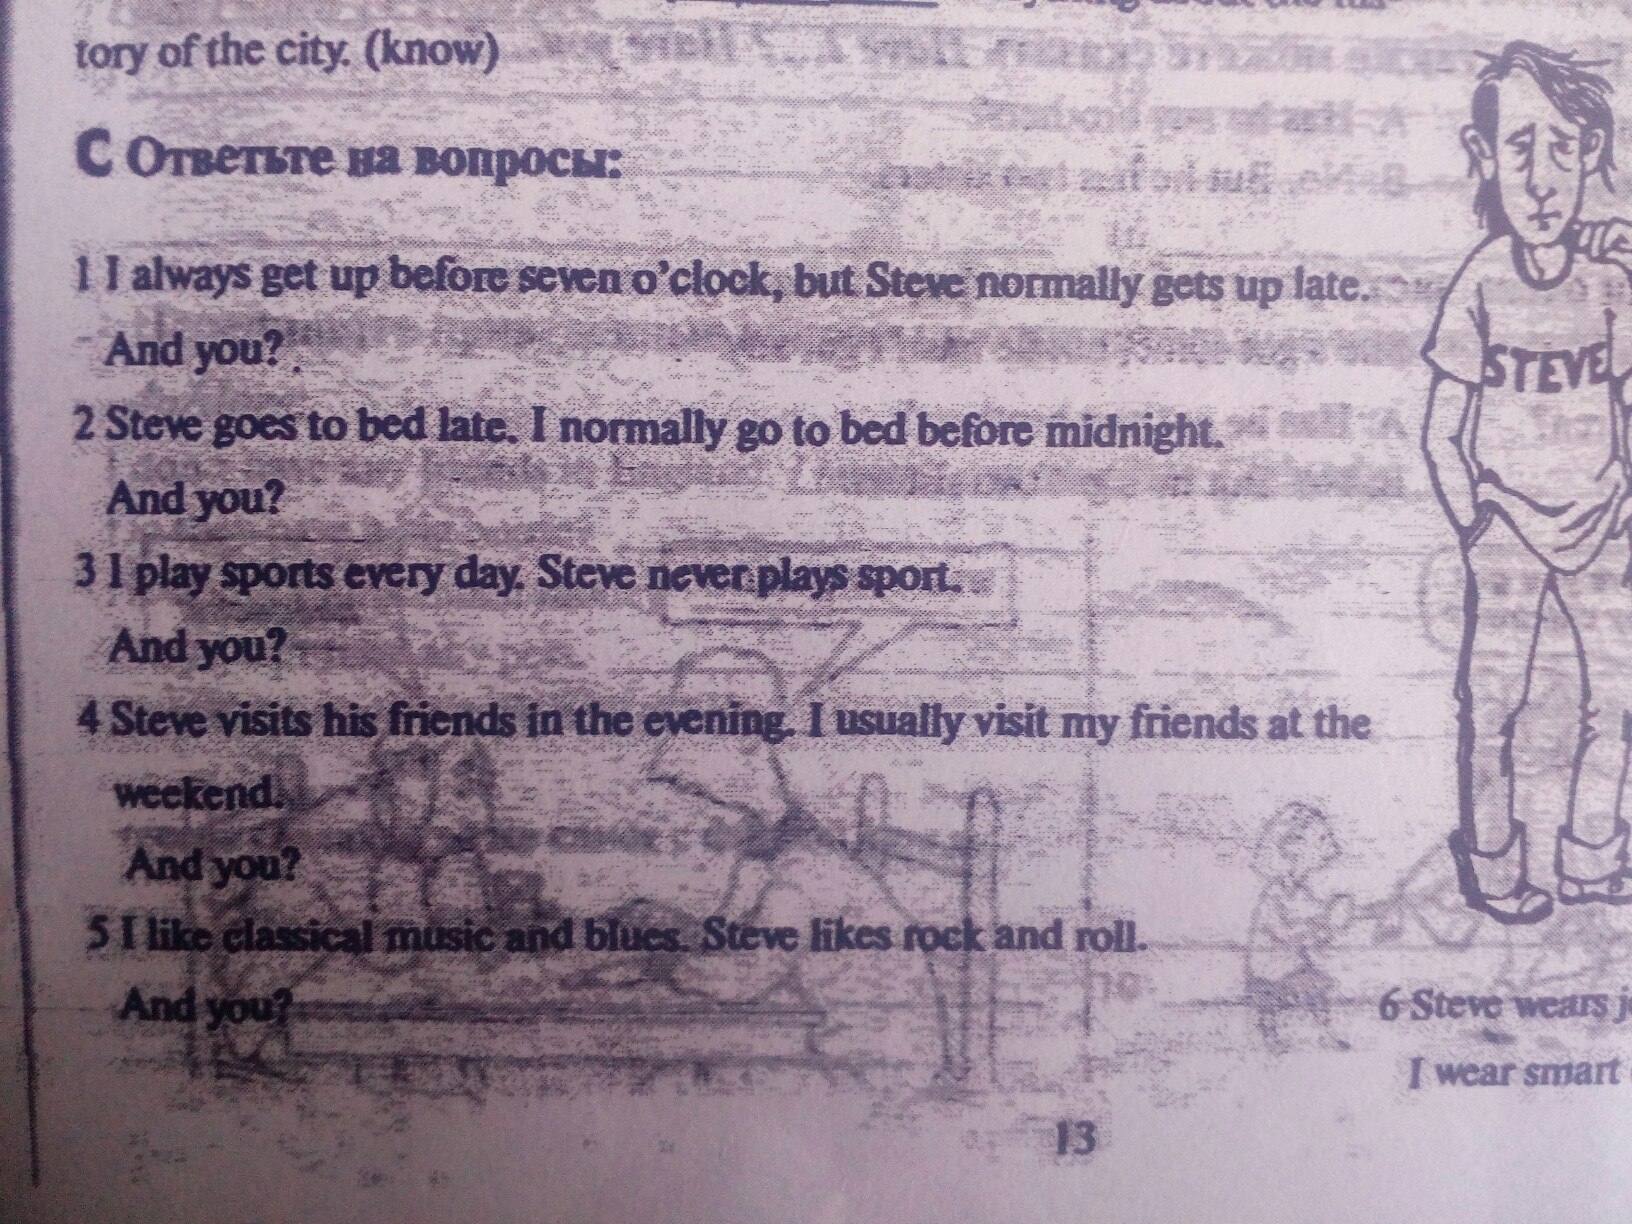 tory of the city. (know)
C Ответьте на вопросы:
1 I always get up before seven o'clock, but Steve normally gets up late.
And you?
2 Steve goes to bed late. I normally go to bed before midnight.
And you?
3 I play sports every day. Steve never plays sport.
And you?
4 Steve visits his friends in the evening. I usually visit my friends at the
weekend.
And you?
5 I like classical music and blues. Steve likes rock and roll.
And you?
STEVE
6 Steve wears
I wear smart
13